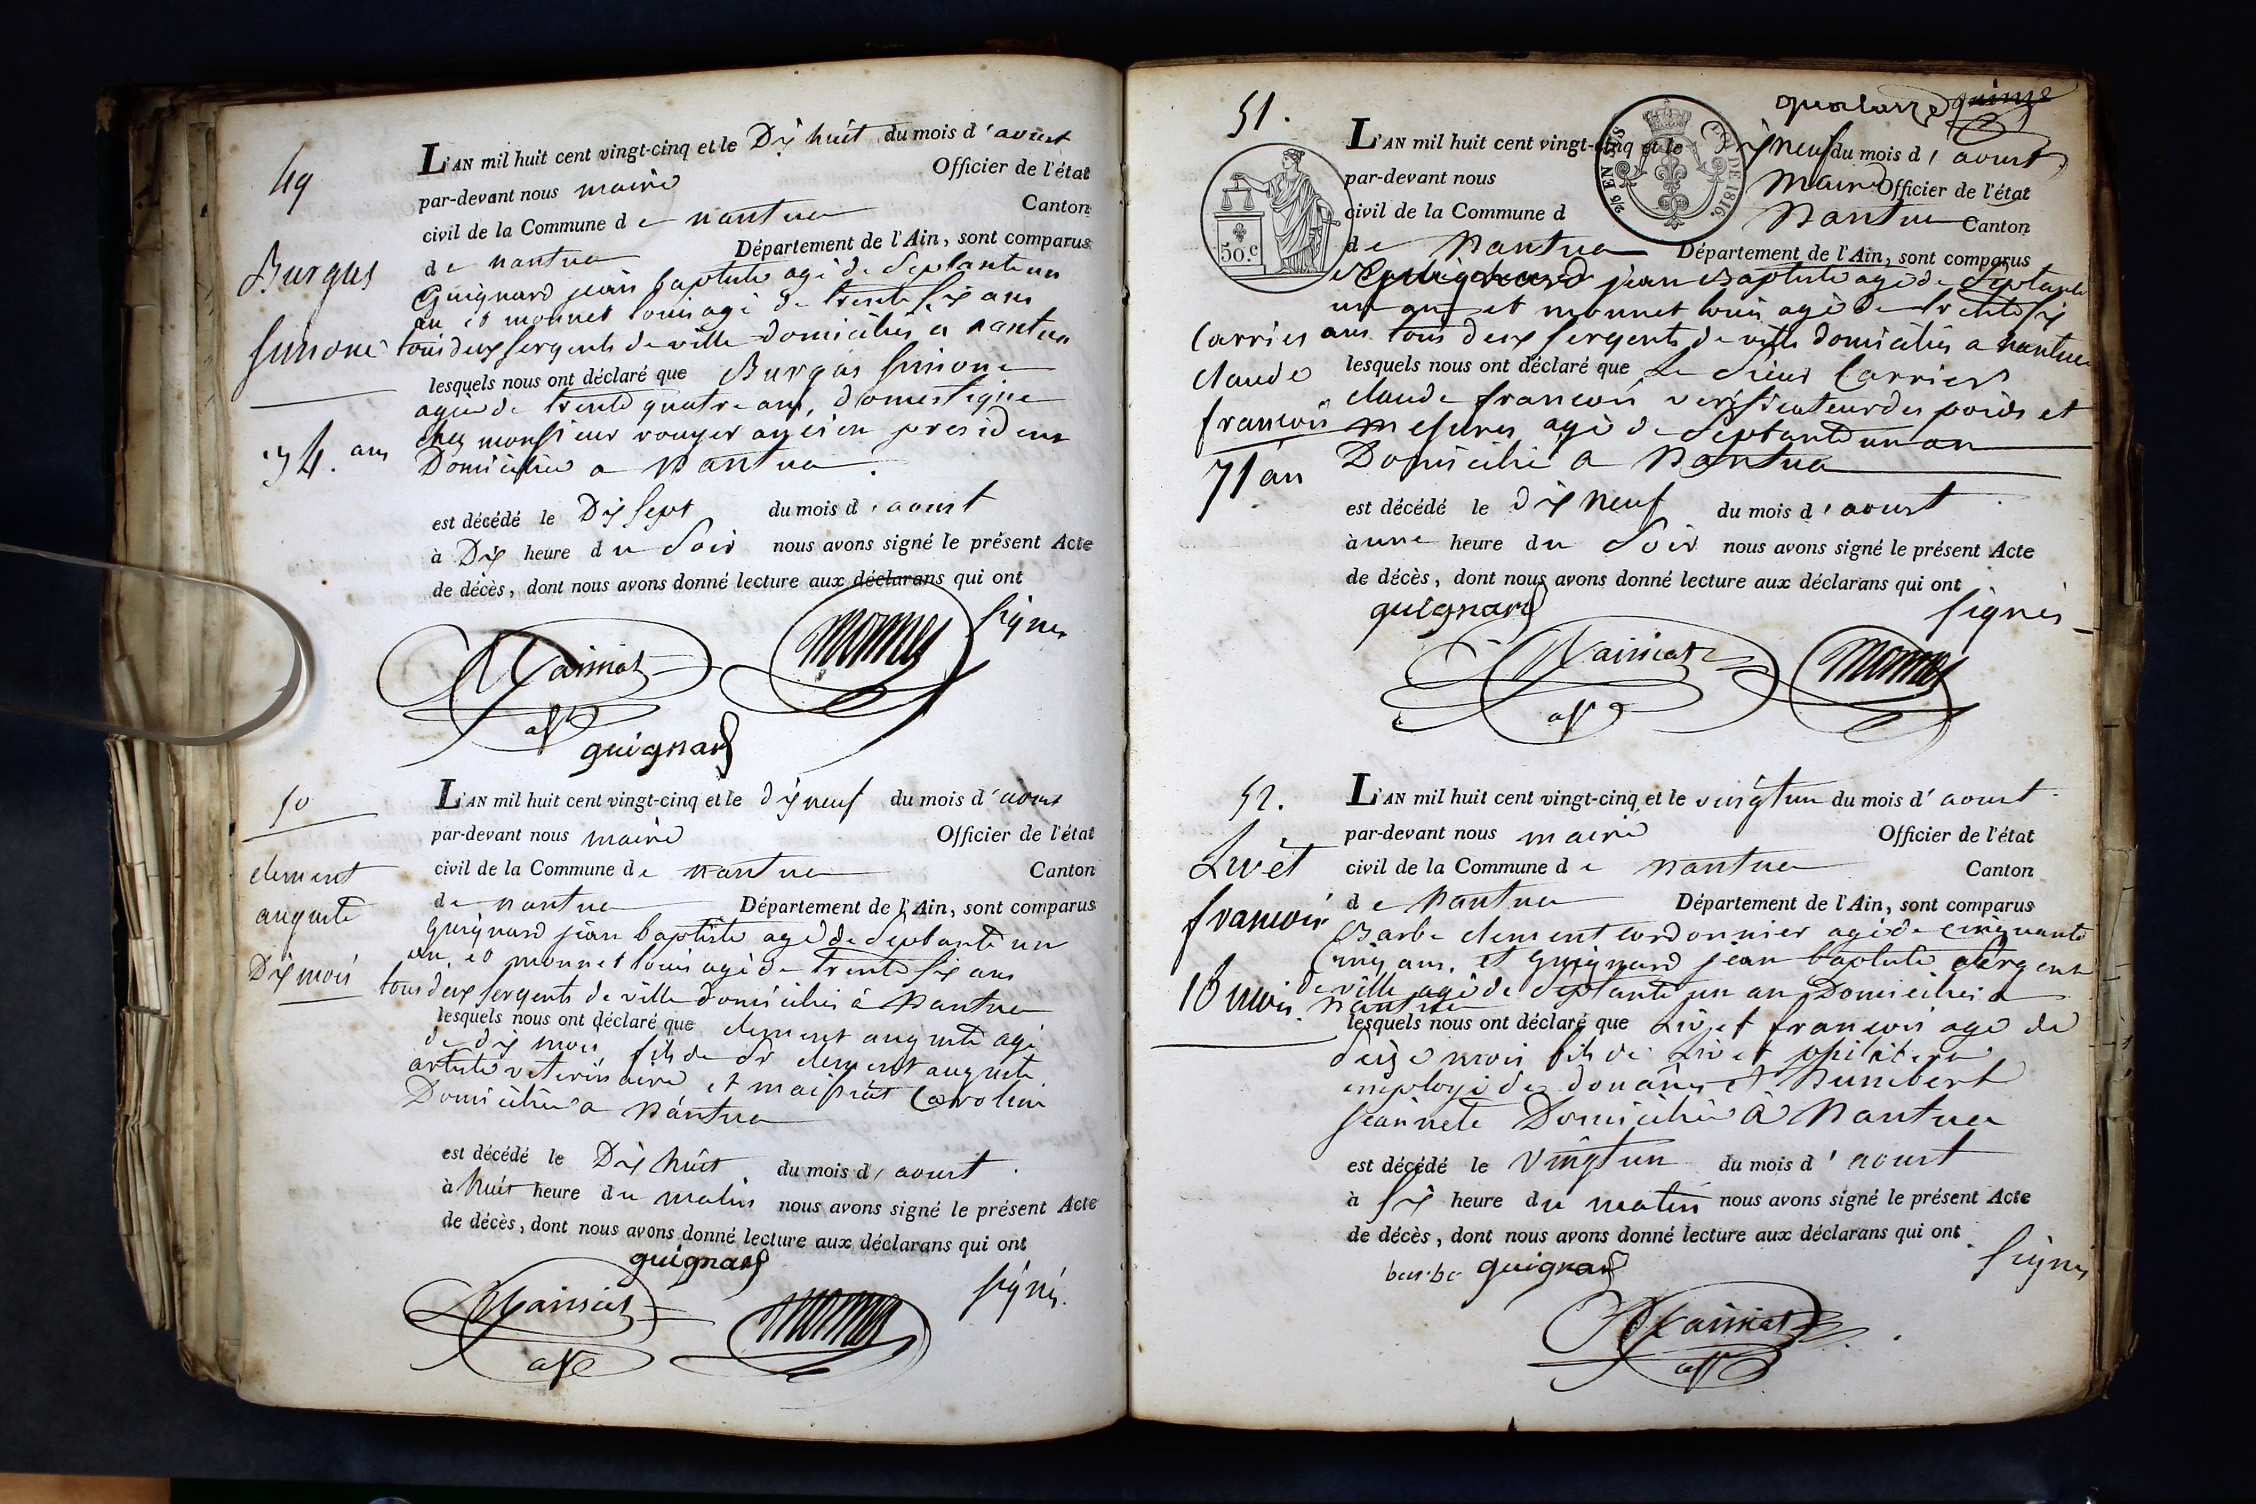 49
L'AN mil huit cent vingt-cinq et le Dix huit du mois d'aoust
par-devant nous maire Officier de l'état
civil de la Commune de nantua Canton
de nantua Département de l'Ain, sont comparus
Guignard jean baptiste agé de Septante un
an et monnet louis agé de trente six ans
tous deux sergents de ville domiciliés a nantua
lesquels nous ont déclaré que Burgas simone
agée de trente quatre ans, domestique
chez monsieur rouyer ancien president
Domiciliée a Nantua.
est décédé le Dix sept du mois d'aoust
à Dix heure du Soir nous avons signé le présent Acte
de décès, dont nous avons donné lecture aux déclarans qui ont
signés
Burgas
simone
34. ans
monnet
guignard
50
L'AN mil huit cent vingt-cinq et le dix neuf du mois d'aoust
par-devant nous maire Officier de l'état
civil de la Commune de nantua Canton
de nantua Département de l'Ain, sont comparus
guignard jean baptiste agé de Septante un
an, et monnet louis agé de trente six ans
tous deux sergents de ville domiciliés à Nantua
lesquels nous ont déclaré que clement auguste agé
de dix mois fils de Sr clement auguste
artiste veterinaire et Caroline
Domiciliée a Nantua
est décédé le Dix huit du mois d'aoust.
à huit heure du matin nous avons signé le présent Acte
de décès, dont nous avons donné lecture aux déclarans qui ont
signés.
clement
auguste
Dix mois
guignard
monnet
quatorze quinze
51.
L'AN mil huit cent vingt-cinq et le Dix neuf du mois d'aoust
par-devant nous maire Officier de l'état
civil de la Commune d Nantua Canton
de Nantua Département de l'Ain, sont comparus
Guignard jean Baptiste agé de Septante
un ans et monnet louis agé de trente six
ans tous deux sergents de ville domiciliés a nantua
lesquels nous ont déclaré que Le Sieur Carrier
claude francois verificateur des poids et
mesures agé de Septante un an
Domicilié a Nantua
est décédé le dix neuf du mois d'aoust.
à une heure du Soir nous avons signé le présent Acte
de décès, dont nous avons donné lecture aux déclarans qui ont
signés
50.c
EN SUS
LOI DE 1816.
Carrier
claude
francois
71 an
guignard
monnet
52.
L'AN mil huit cent vingt-cinq et le vingt un du mois d'aoust
par-devant nous maire Officier de l'état
civil de la Commune de nantua Canton
de Nantua Département de l'Ain, sont comparus
Barbe clement cordonnier agé de cinquante
cinq ans, et guignard jean baptiste sergent
de ville agé de septante un an Domiciliés a
nantua
lesquels nous ont déclaré que Livet francois age de
seize mois fils de Livet
employé des douanes et humbert
jeannete Domiciliée à Nantua
est décédé le vingt un du mois d'aoust
à six heure du matin nous avons signé le présent Acte
de décès, dont nous avons donné lecture aux déclarans qui ont
signés
Livet
francois
16 mois
barbe guignard